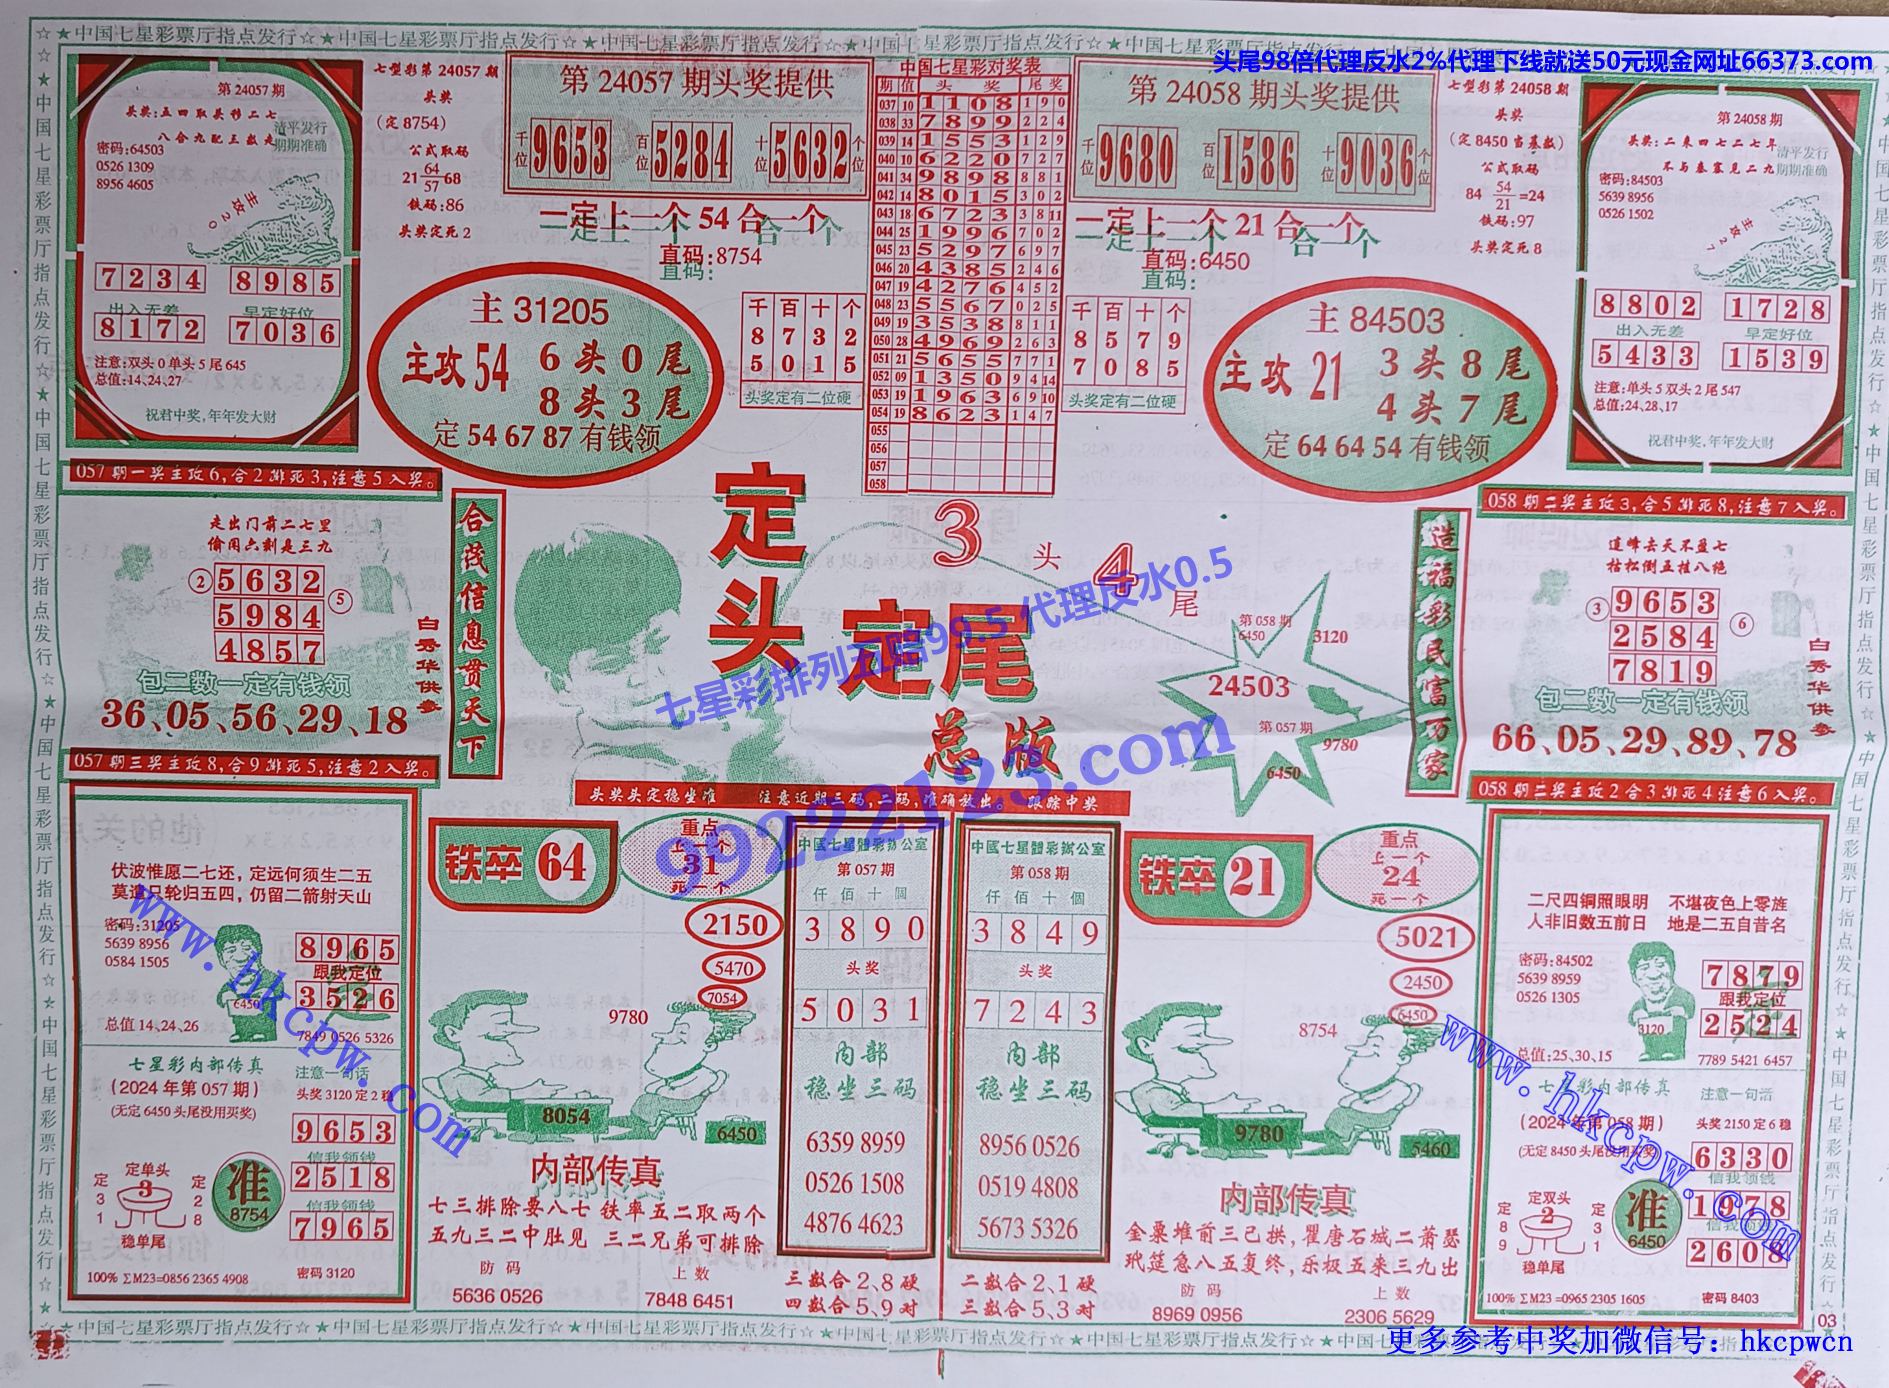 ☆★中国七星彩票厅指点发行☆★中国七星彩票厅指点发行☆★中国七星彩票厅指点发行☆★中国七星彩票厅指点发行☆★中国七星彩票厅指点发行
头尾98倍代理反水2%代理下线就送50元现金网址66373.com
第 24057 期
头奖:五四取英移二七
八合九配三数走
清平发行
期期准确
密码:64503
0526 1309
8956 4605
主攻20
7234 8985
出入无差 早定好位
8172 7036
注意:双头 0 单头 5 尾 645
总值:14、24、27
祝君中奖,年年发大财
七型彩第 24057 期
头奖
(定 8754)
公式取码
21 64 57 68
铁码:86
头奖定死 2
第 24057 期头奖提供
千位 9653 百位 5284 十位 5632 个位
一定上一个 54 合一个
直码:8754
主 31205
主攻 54 6 头 0 尾
8 头 3 尾
定 54 67 87 有钱领
千百十个
8732
5015
头奖定有二位硬
中国七星彩对奖表
期 值 头奖 尾奖
037 10 1108 190
038 33 7899 224
039 14 1553 129
040 10 6220 727
041 34 9898 881
042 14 8015 302
043 18 6723 3 8 11
044 25 1996 702
045 23 5297 697
046 20 4385 246
047 19 4276 452
048 23 5567 025
049 19 3538 811
050 28 4969 263
051 21 5655 771
052 09 1350 9 4 14
053 19 1963 6 9 10
054 19 8623 147
055
056
057
058
第 24058 期头奖提供
千位 9680 百位 1586 十位 9036 个位
一定上一个 21 合一个
直码:6450
千百十个
8579
7085
头奖定有二位硬
主 84503
主攻 21 3 头 8 尾
4 头 7 尾
定 64 64 54 有钱领
七型彩第 24058 期
头奖
(定 8450 当基数)
公式取码
84 54 21 =24
铁码:97
头奖定死 8
第 24058 期
头奖:二来四七二七年
不与秦塞见二九
清平发行
期期准确
密码:84503
5639 8956
0526 1502
主攻27
8802 1728
出入无差 早定好位
5433 1539
注意:单头 5 双头 2 尾 547
总值:24、28、17
祝君中奖,年年发大财
057 期一奖主攻 6,合 2 排死 3,注意 5 入奖。
走出门前二七里
偷闲六剩是三九
② 5632 ⑤
5984
4857
包二数一定有钱领
36、05、56、29、18
白秀华供参
合茂信息贯天下
定头 定尾
3 头 4 尾
总版
七星彩排列五赔99.5 代理反水0.5
9922123.com
头奖头定稳坐准 注意近期三码,二码,准确放出。 跟踪中奖
第 058 期
6450
3120
24503
第 057 期
9780
6450
造福彩民富万家
058 期二奖主攻 3,合 5 排死 8,注意 7 入奖。
连峰去天不盈七
枯松倒五挂八绝
③ 9653 ⑥
2584
7819
包二数一定有钱领
66、05、29、89、78
白秀华供参
057 期三奖主攻 8,合 9 排死 5,注意 2 入奖。
伏波惟愿二七还,定远何须生二五
莫遣只轮归五四,仍留二箭射天山
密码:31205
5639 8956
0584 1505
6450
8965
跟我定位
3526
总值 14、24、26
7849 0526 5326
七星彩内部传真
(2024 年第 057 期)
(无定 6450 头尾没用买奖)
注意一句话
头奖 3120 定 2 稳
9653
信我领钱
2518
信我领钱
7965
定单头
定31 3 定28
稳单尾
准
8754
100% ΣM23=0856 2365 4908
密码 3120
www.hkcpw.com
铁卒 64
重点
上一个
31
死一个
2150
5470
7054
9780
8054
6450
内部传真
七三排除要八七 铁率五二取两个
五九三二中肚见 三二兄弟可排除
防码 上数
5636 0526 7848 6451
中國七星體彩辦公室
第 057 期
仟佰十個
3890
头奖
5031
内部
稳坐三码
6359 8959
0526 1508
4876 4623
三数合 2、8 硬
四数合 5、9 对
中國七星體彩辦公室
第 058 期
仟佰十個
3849
头奖
7243
内部
稳坐三码
8956 0526
0519 4808
5673 5326
二数合 2、1 硬
三数合 5、3 对
铁卒 21
重点
上一个
24
死一个
5021
2450
6450
8754
9780
5460
内部传真
金粟堆前三已拱,瞿唐石城二萧瑟
玳筵急八五复终,乐极五来三九出
防码 上数
8969 0956 2306 5629
058 期二奖主攻 2 合 3 排死 4 注意 6 入奖。
二尺四铜照眼明 不堪夜色上零旌
人非旧数五前日 地是二五自昔名
密码:84502
5639 8959
0526 1305
3120
7879
跟我定位
2524
总值:25、30、15
7789 5421 6457
七星彩内部传真
(2024 年第 058 期)
(无定 8450 头尾没用买奖)
注意一句活
头奖 2150 定 6 稳
6330
信我领钱
1978
信我领钱
2608
定双头
定89 2 定31
稳单尾
准
6450
100% ΣM23=0965 2305 1605
密码 8403
www.hkcpw.com
03
☆★中国七星彩票厅指点发行☆★中国七星彩票厅指点发行☆★中国七星彩票厅指点发行☆★中国七星彩票厅指点发行
更多参考中奖加微信号：hkcpwcn